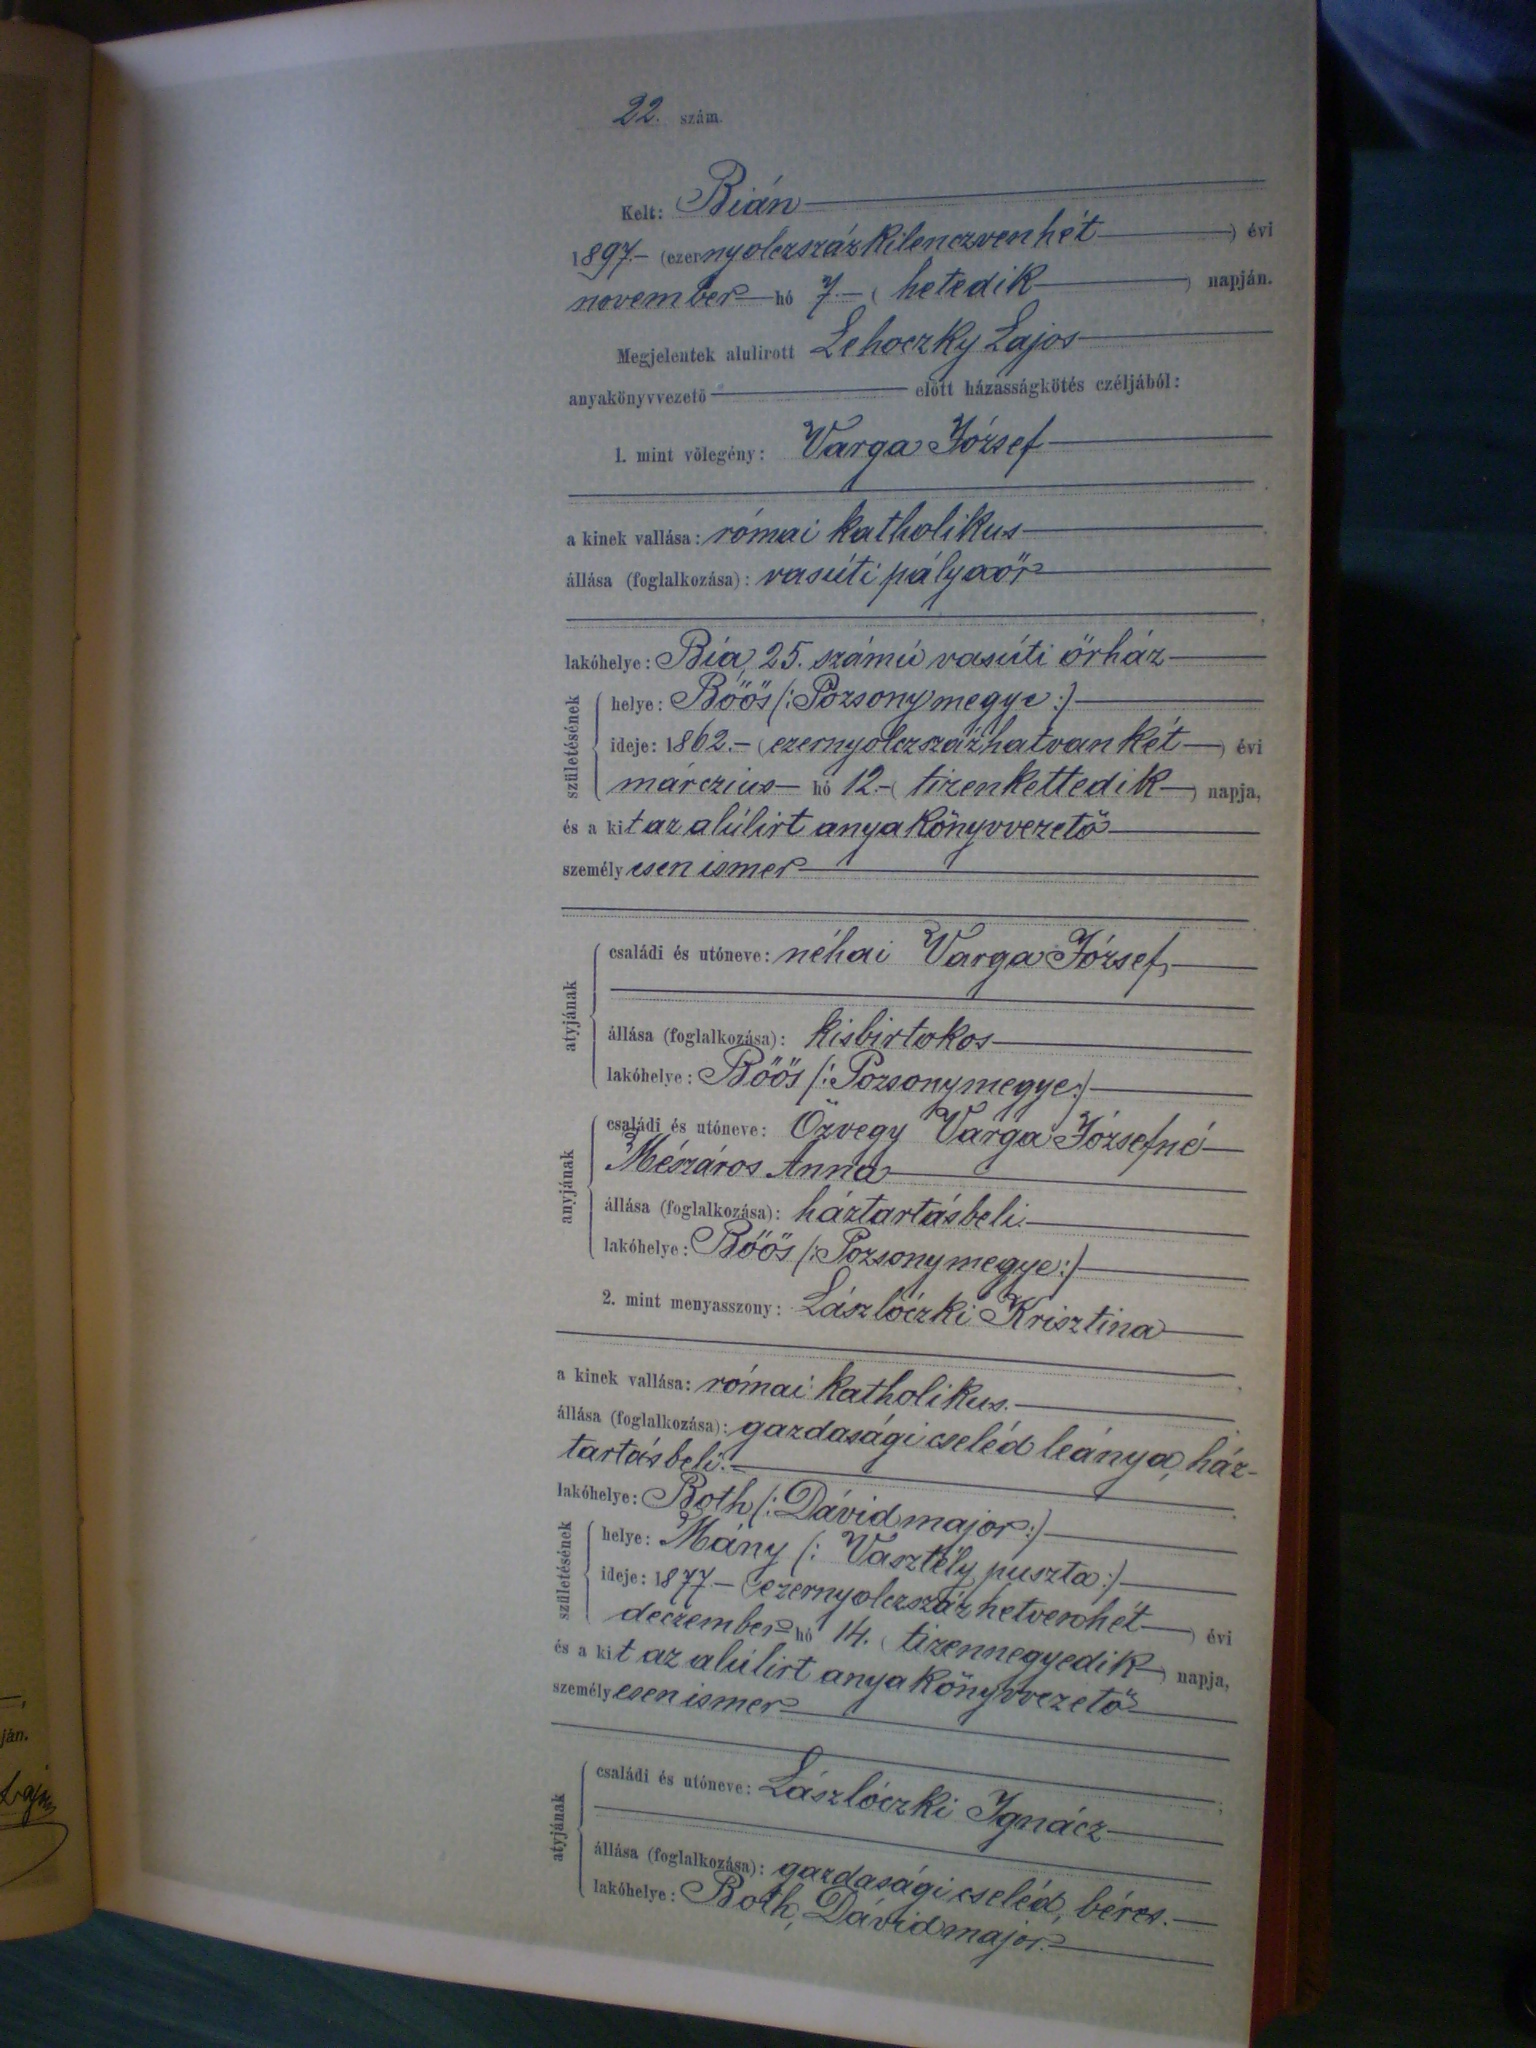 22. szám.
Kelt: Bián
1897.– (ezernyolczszázkilenczvenhét) évi
november hó 7.– (hetedik) napján.
Megjelentek alulirott Lehoczky Lajos
anyakönyvvezető előtt házasságkötés czéljából:
1. mint vőlegény: Varga József
a kinek vallása: római katholikus
állása (foglalkozása): vasúti pályaőr
lakóhelye: Bia, 25. számú vasúti őrház
születésének
helye: Bőős (: Pozsonymegye :)
ideje: 1862.– (ezernyolczszázhatvankét) évi
márczius hó 12.– (tizenkettedik) napja,
és a kit az alúlirt anyakönyvvezető
személyesen ismer
atyjának
családi és utóneve: néhai Varga József,
állása (foglalkozása): kisbirtokos
lakóhelye: Bőős (: Pozsonymegye :)
anyjának
családi és utóneve: Özvegy Varga Józsefné
Mészáros Anna
állása (foglalkozása): háztartásbeli.
lakóhelye: Bőős (: Pozsonymegye :)
2. mint menyasszony: Lászlóczki Krisztina
a kinek vallása: római katholikus.
állása (foglalkozása): gazdasági cseléd leánya, ház-
tartásbeli.
lakóhelye: Both (: Dávidmajor :)
születésének
helye: Mány (: Vasztély puszta :)
ideje: 1877.– (ezernyolczszázhetvenhét) évi
deczember hó 14. (tizennegyedik) napja,
és a kit az alúlirt anyakönyvvezető
személyesen ismer
atyjának
családi és utóneve: Lászlóczki Ignácz
állása (foglalkozása): gazdasági cseléd, béres.
lakóhelye: Both, Dávidmajor.
ján.